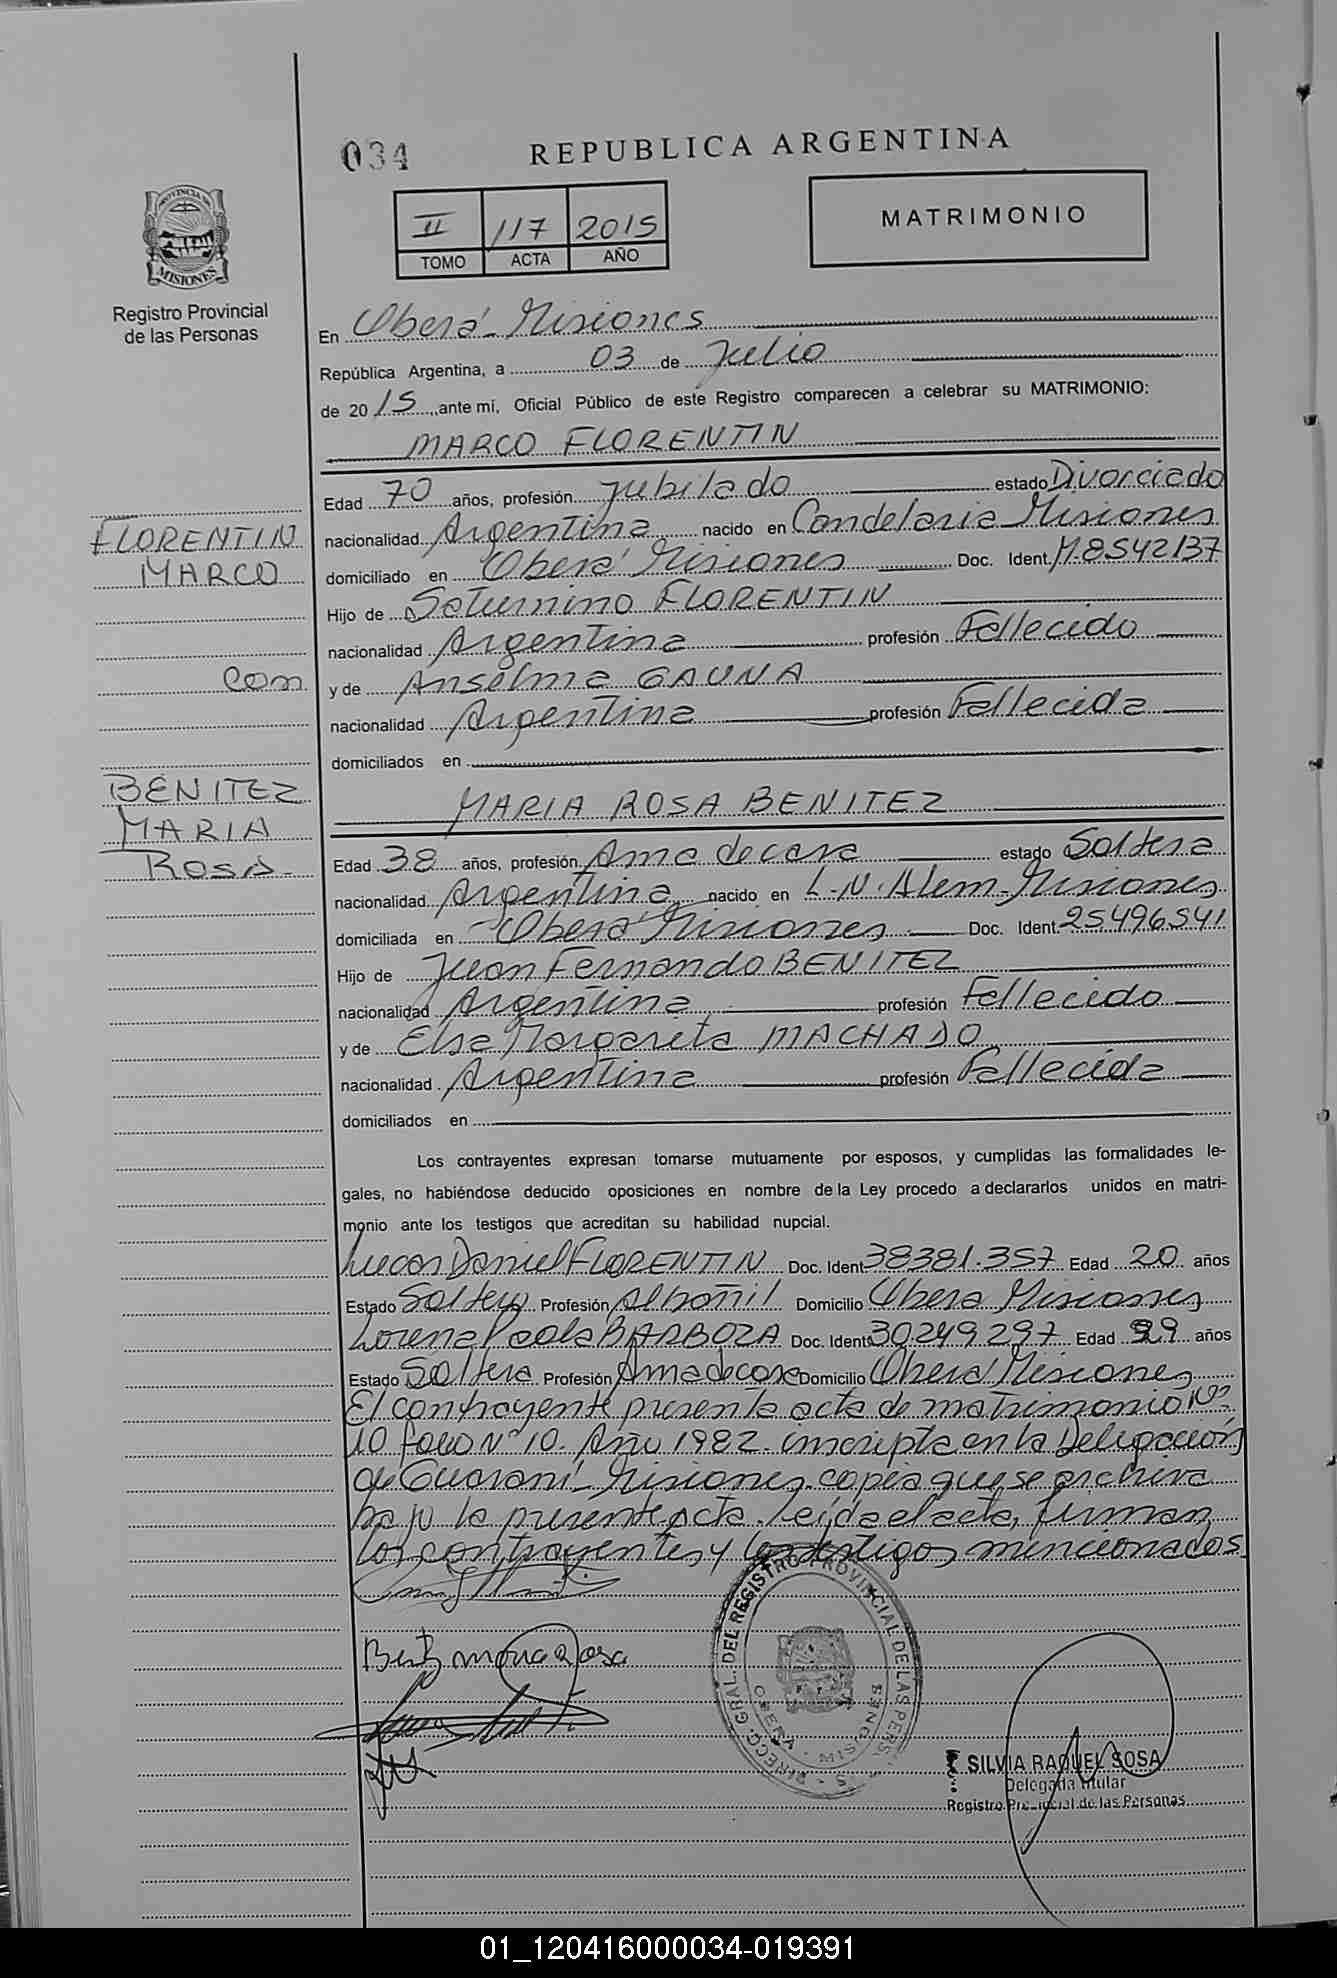 034
REPUBLICA ARGENTINA
II 117 2015
TOMO ACTA AÑO
MATRIMONIO
PROVINCIA DE
MISIONES
Registro Provincial
de las Personas
En Oberá - Misiones
República Argentina, a 03 de Julio
de 2015, ante mí, Oficial Público de este Registro comparecen a celebrar su MATRIMONIO:
MARCO FLORENTIN
Edad 70 años, profesión Jubilado estado Divorciado
nacionalidad Argentina nacido en Candelaria Misiones
domiciliado en Oberá Misiones Doc. Ident. M.8542137
Hijo de Saturnino FLORENTIN
nacionalidad Argentina profesión Fallecido
y de Anselma GAUNA
nacionalidad Argentina profesión Fallecida
domiciliados en
FLORENTIN
MARCO
con
BENITEZ
MARIA
ROSA.-
MARIA ROSA BENITEZ
Edad 38 años, profesión Ama de casa estado Soltera
nacionalidad Argentina nacido en L.N. Alem - Misiones
domiciliada en Oberá Misiones Doc. Ident. 25496541
Hijo de Juan Fernando BENITEZ
nacionalidad Argentina profesión Fallecido
y de Elsa Margareta MACHADO
nacionalidad Argentina profesión Fallecida
domiciliados en
Los contrayentes expresan tomarse mutuamente por esposos, y cumplidas las formalidades le-
gales, no habiéndose deducido oposiciones en nombre de la Ley procedo a declararlos unidos en matri-
monio ante los testigos que acreditan su habilidad nupcial.
Lucas Daniel FLORENTIN Doc. Ident 38381.357 Edad 20 años
Estado Soltero Profesión Albañil Domicilio Oberá Misiones
Lorena Paola BARBOZA Doc. Ident 30249297 Edad 29 años
Estado Soltera Profesión Ama de casa Domicilio Oberá Misiones
El contrayente presenta acta de matrimonio Nº
10 folio Nº 10. Año 1982. inscripta en la Delegación
de Guaraní - Misiones. copia que se archiva
bajo la presente acta. Leída el acta, firman
los contrayentes y los testigos mencionados
DIRECC. GRAL. DEL REGISTRO PROVINCIAL DE LAS PERS.
OBERA - MISIONES
SILVIA RAQUEL SOSA
Delegada Titular
Registro Provincial de las Personas
01_120416000034-019391